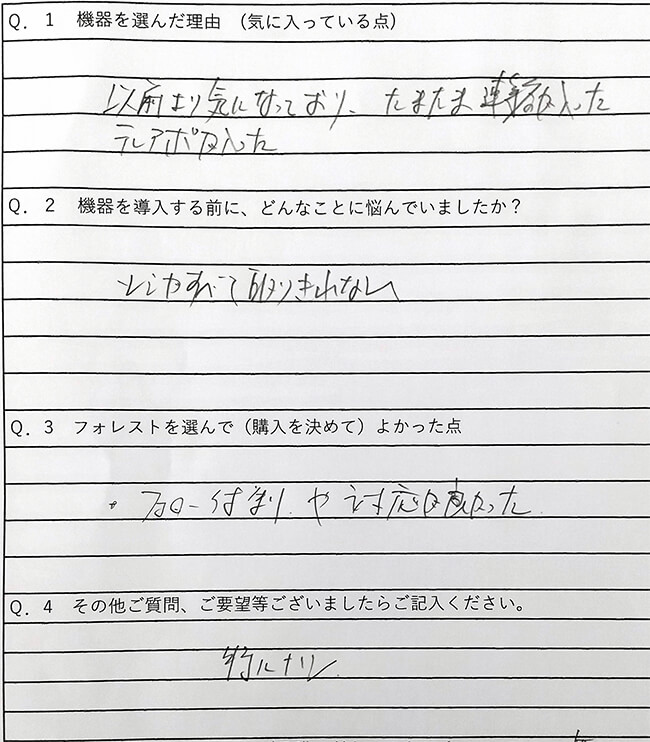 Q. 1 機器を選んだ理由 (気に入っている点)
以前より気になっており、たまたま連絡が入った
テレアポが入った
Q. 2 機器を導入する前に、どんなことに悩んでいましたか？
シミがすべて取りきれない
Q. 3 フォレストを選んで（購入を決めて）よかった点
・フォロー体制や対応が良かった
Q. 4 その他ご質問、ご要望等ございましたらご記入ください。
特にナシ